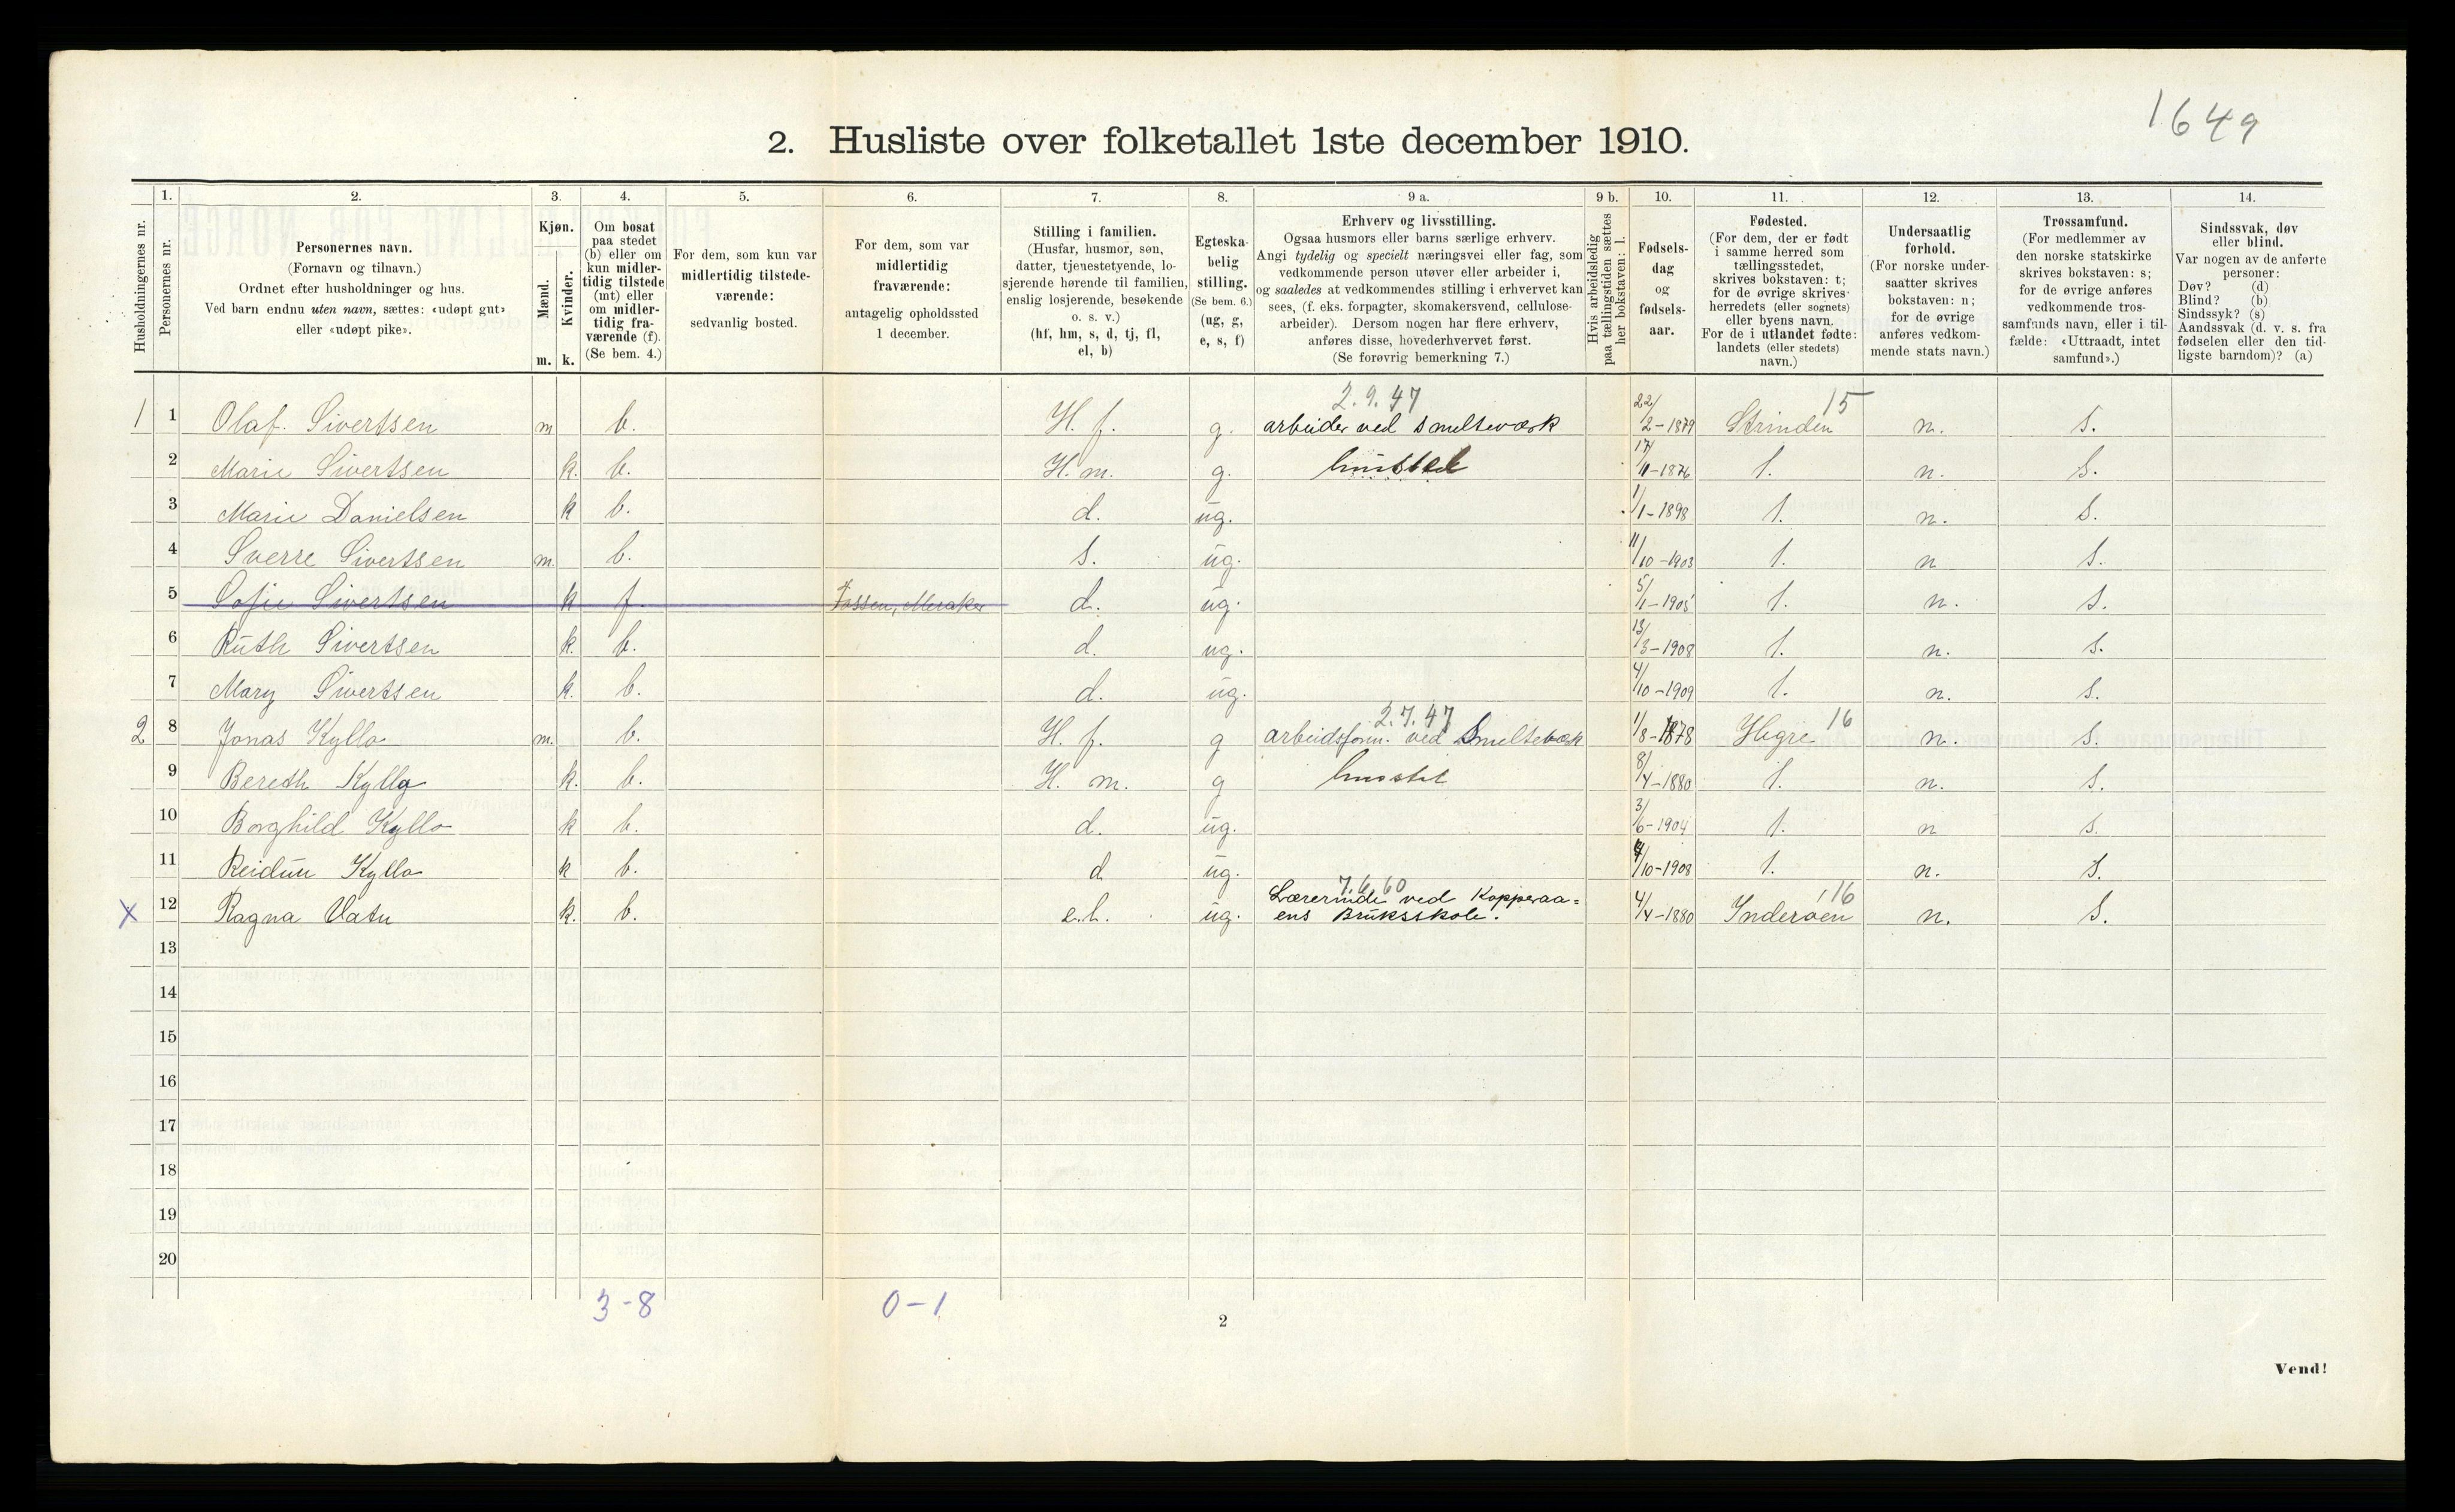 1649
2. Husliste over folketallet 1ste december 1910.
1. 2. 3. 4. 5. 6. 7. 8. 9 a. 9 b. 10. 11. 12. 13. 14.
Husholdningernes nr.
Personernes nr.
Personernes navn.
(Fornavn og tilnavn.)
Ordnet efter husholdninger og hus.
Ved barn endnu uten navn, sættes: «udøpt gut»
eller «udøpt pike».
Kjøn.
Mænd.
Kvinder.
m. k.
Om bosat
paa stedet
(b) eller om
kun midler-
tidig tilstede
(mt) eller
om midler-
tidig fra-
værende (f).
(Se bem. 4.)
For dem, som kun var
midlertidig tilstede-
værende:
sedvanlig bosted.
For dem, som var
midlertidig
fraværende:
antagelig opholdssted
1 december.
Stilling i familien.
(Husfar, husmor, søn,
datter, tjenestetyende, lo-
sjerende hørende til familien,
enslig losjerende, besøkende
o. s. v.)
(hf, hm, s, d, tj, fl,
el, b)
Egteska-
belig
stilling.
(Se bem. 6.)
(ug, g,
e, s, f)
Erhverv og livsstilling.
Ogsaa husmors eller barns særlige erhverv.
Angi tydelig og specielt næringsvei eller fag, som
vedkommende person utøver eller arbeider i,
og saaledes at vedkommendes stilling i erhvervet kan
sees, (f. eks. forpagter, skomakersvend, cellulose-
arbeider). Dersom nogen har flere erhverv,
anføres disse, hovederhvervet først.
(Se forøvrig bemerkning 7.)
Hvis arbeidsledig
paa tællingstiden sættes
her bokstaven: l.
Fødsels-
dag
og
fødsels-
aar.
Fødested.
(For dem, der er født
i samme herred som
tællingsstedet,
skrives bokstaven: t;
for de øvrige skrives
herredets (eller sognets)
eller byens navn.
For de i utlandet fødte:
landets (eller stedets)
navn.)
Undersaatlig
forhold.
(For norske under-
saatter skrives
bokstaven: n;
for de øvrige
anføres vedkom-
mende stats navn.)
Trossamfund.
(For medlemmer av
den norske statskirke
skrives bokstaven: s;
for de øvrige anføres
vedkommende tros-
samfunds navn, eller i til-
fælde: «Uttraadt, intet
samfund».)
Sindssvak, døv
eller blind.
Var nogen av de anførte
personer:
Døv? (d)
Blind? (b)
Sindssyk? (s)
Aandssvak (d. v. s. fra
fødselen eller den tid-
ligste barndom)? (a)
2.9.47 15
1 1 Olaf Sivertsen m b. H. f. g. arbeider ved smelteværk 22/2-1879 Strinden n. S.
2 Marie Sivertsen k. b. H. m. g. hustel 17/11-1876 t. n. S.
3 Marie Danielsen k b. d. ug. 1/1-1898 t. n. S.
4 Sverre Sivertsen m. b. s. ug. 11/10-1903 t. n S.
5 Sofie Sivertsen k f. Fossen, Meraker d. ug. 5/1-1905 t. n. S.
6 Ruth Sivertsen k. b. d. ug. 13/3-1908 t. n. S.
7 Mary Sivertsen k. b. d. ug. 4/10-1909 t. n. S.
2.7.47 16
2 8 Jonas Kyllo m. b. H. f. g arbeidsform. ved Smelteværk 1/8-1878 Hegre n. S.
9 Bereth Kyllo k. b. H. m. g hustel 8/4-1880 t. n. S.
10 Borghild Kyllo k b. d. ug. 3/6-1904 t. n S.
11 Reidun Kyllo k b. d ug. /10-1908 t. n. S.
7.6.60 16
x 12 Ragna Vatn k. b. e.l. ug. Lærerinde ved Kopperaa=
ens Bruksskole. 4/4-1880 Inderøen n. S.
13
14
15
16
17
18
19
20
3-8 0-1
2
Vend!